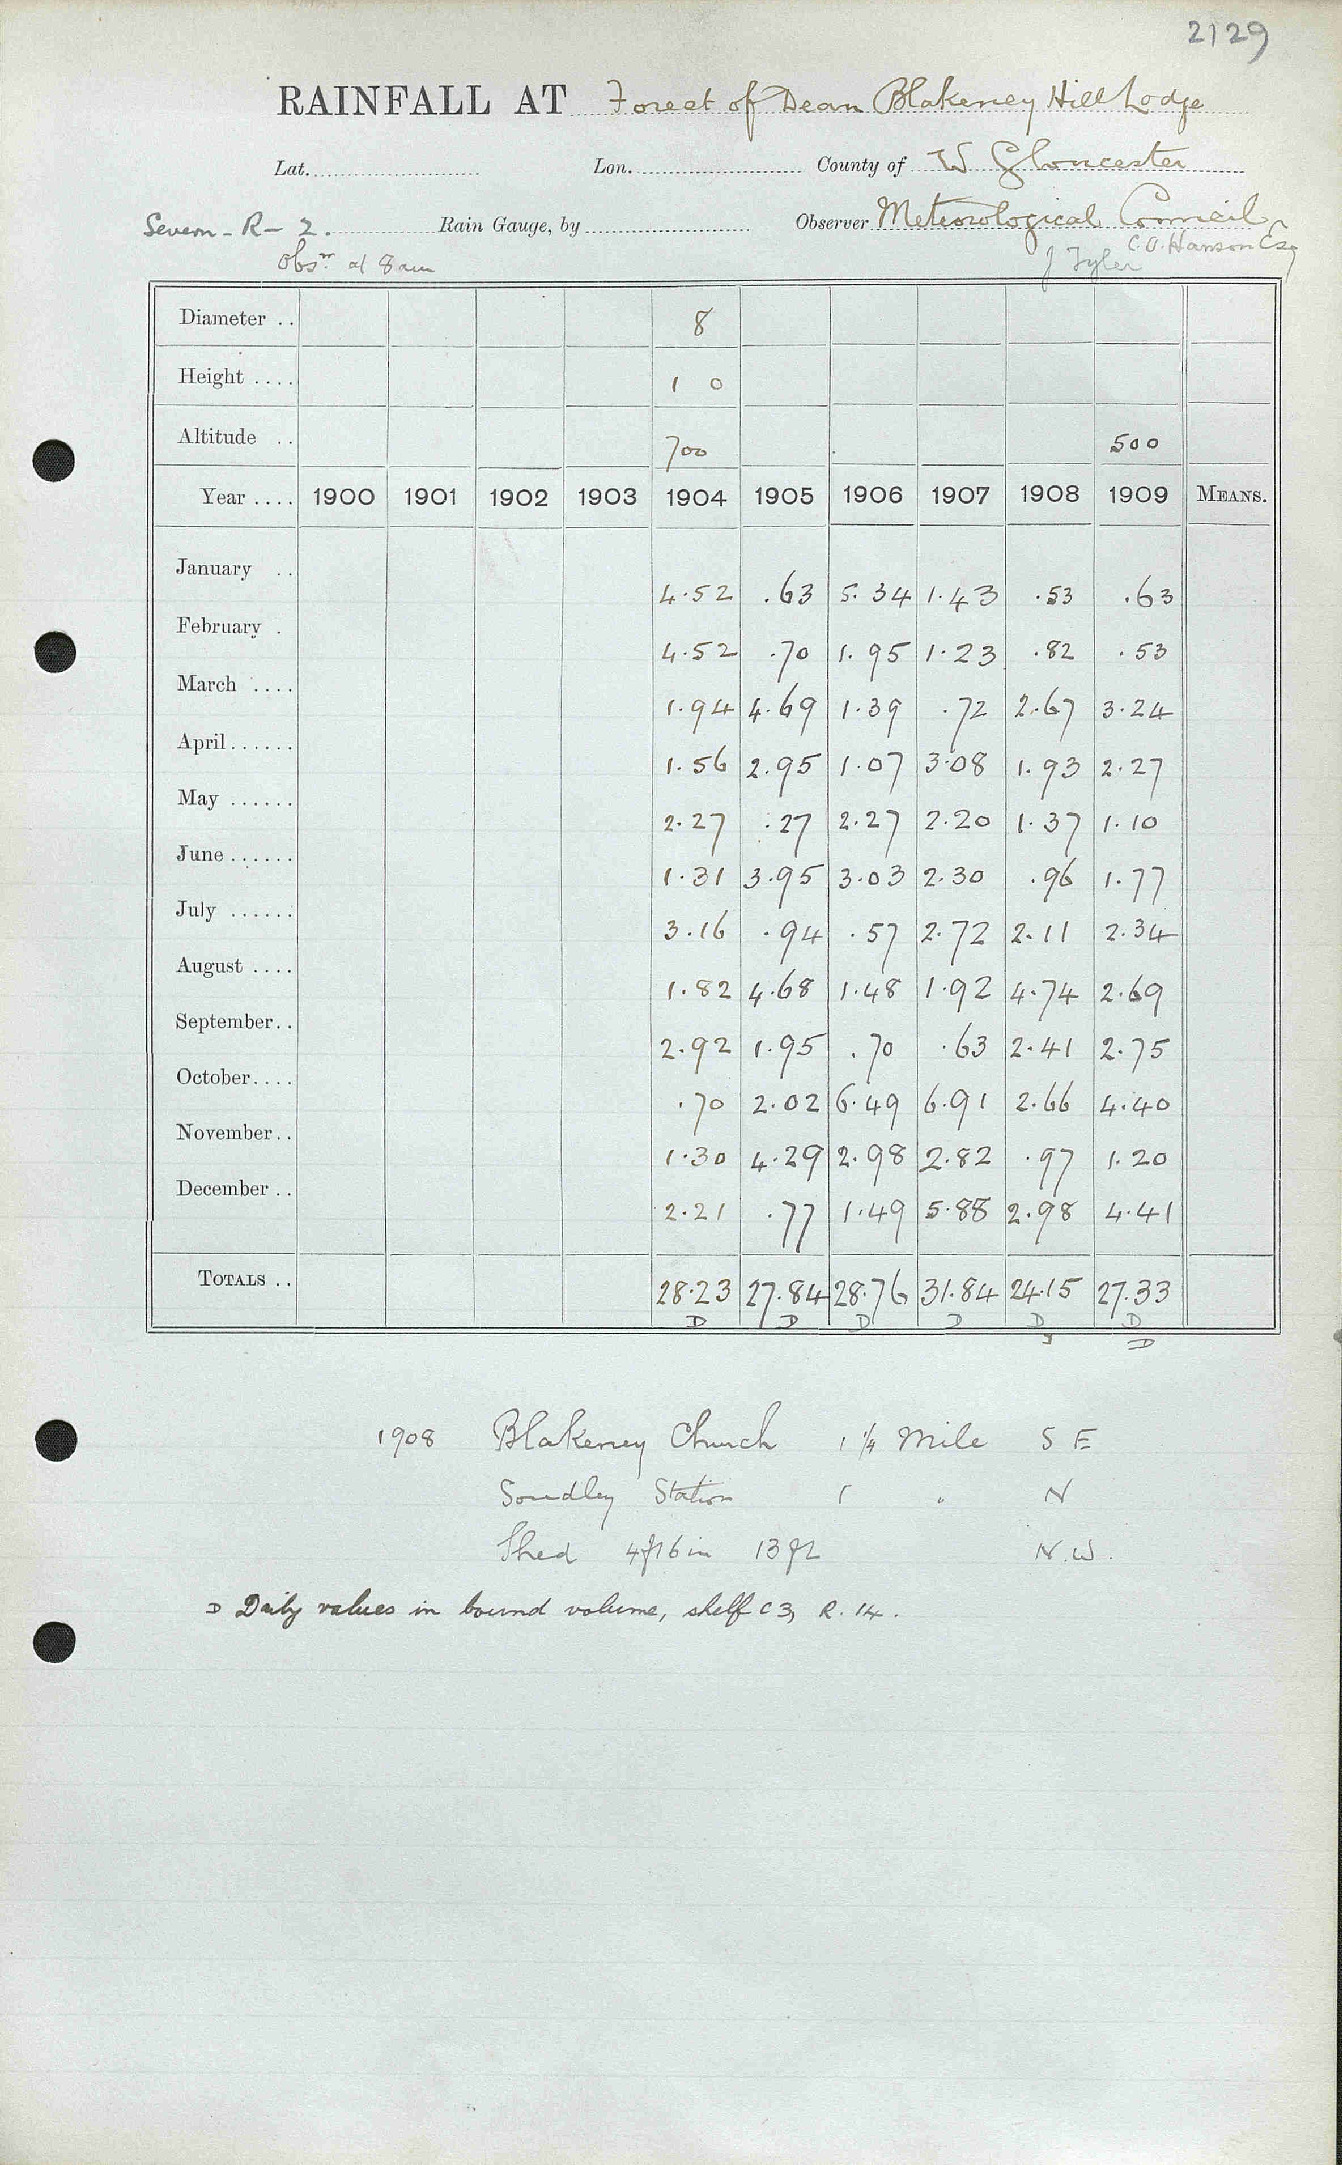 2129
RAINFALL AT Forest of Dean Blakeney Hill Lodge
Lat. Lon. County of W Gloucester
Severn - R - 2. Rain Gauge, by Observer Meteorological Council
Obsn. at 8 am J Tyler C. O. Hanson Esq
Diameter .. 8
Height .... 1 0
Altitude .. 700 500
Year .... 1900 1901 1902 1903 1904 1905 1906 1907 1908 1909 MEANS.
January .. 4.52 .63 5.34 1.43 .53 .63
February . 4.52 .70 1.95 1.23 .82 .53
March .... 1.94 4.69 1.39 .72 2.67 3.24
April...... 1.56 2.95 1.07 3.08 1.93 2.27
May ...... 2.27 .27 2.27 2.20 1.37 1.10
June...... 1.31 3.95 3.03 2.30 .96 1.77
July ...... 3.16 .94 .57 2.72 2.11 2.34
August .... 1.82 4.68 1.48 1.92 4.74 2.69
September.. 2.92 1.95 .70 .63 2.41 2.75
October.... .70 2.02 6.49 6.91 2.66 4.40
November.. 1.30 4.29 2.98 2.82 .97 1.20
December .. 2.21 .77 1.49 5.88 2.98 4.41
TOTALS .. 28.23 27.84 28.76 31.84 24.15 27.33
D D D D D D
D
1908 Blakeney Church 1 1/4 Mile S E
Soudley Station 1 " N
Shed 4ft 6in 13ft N.W.
D Daily values in bound volume, shelf C3, R. 14.